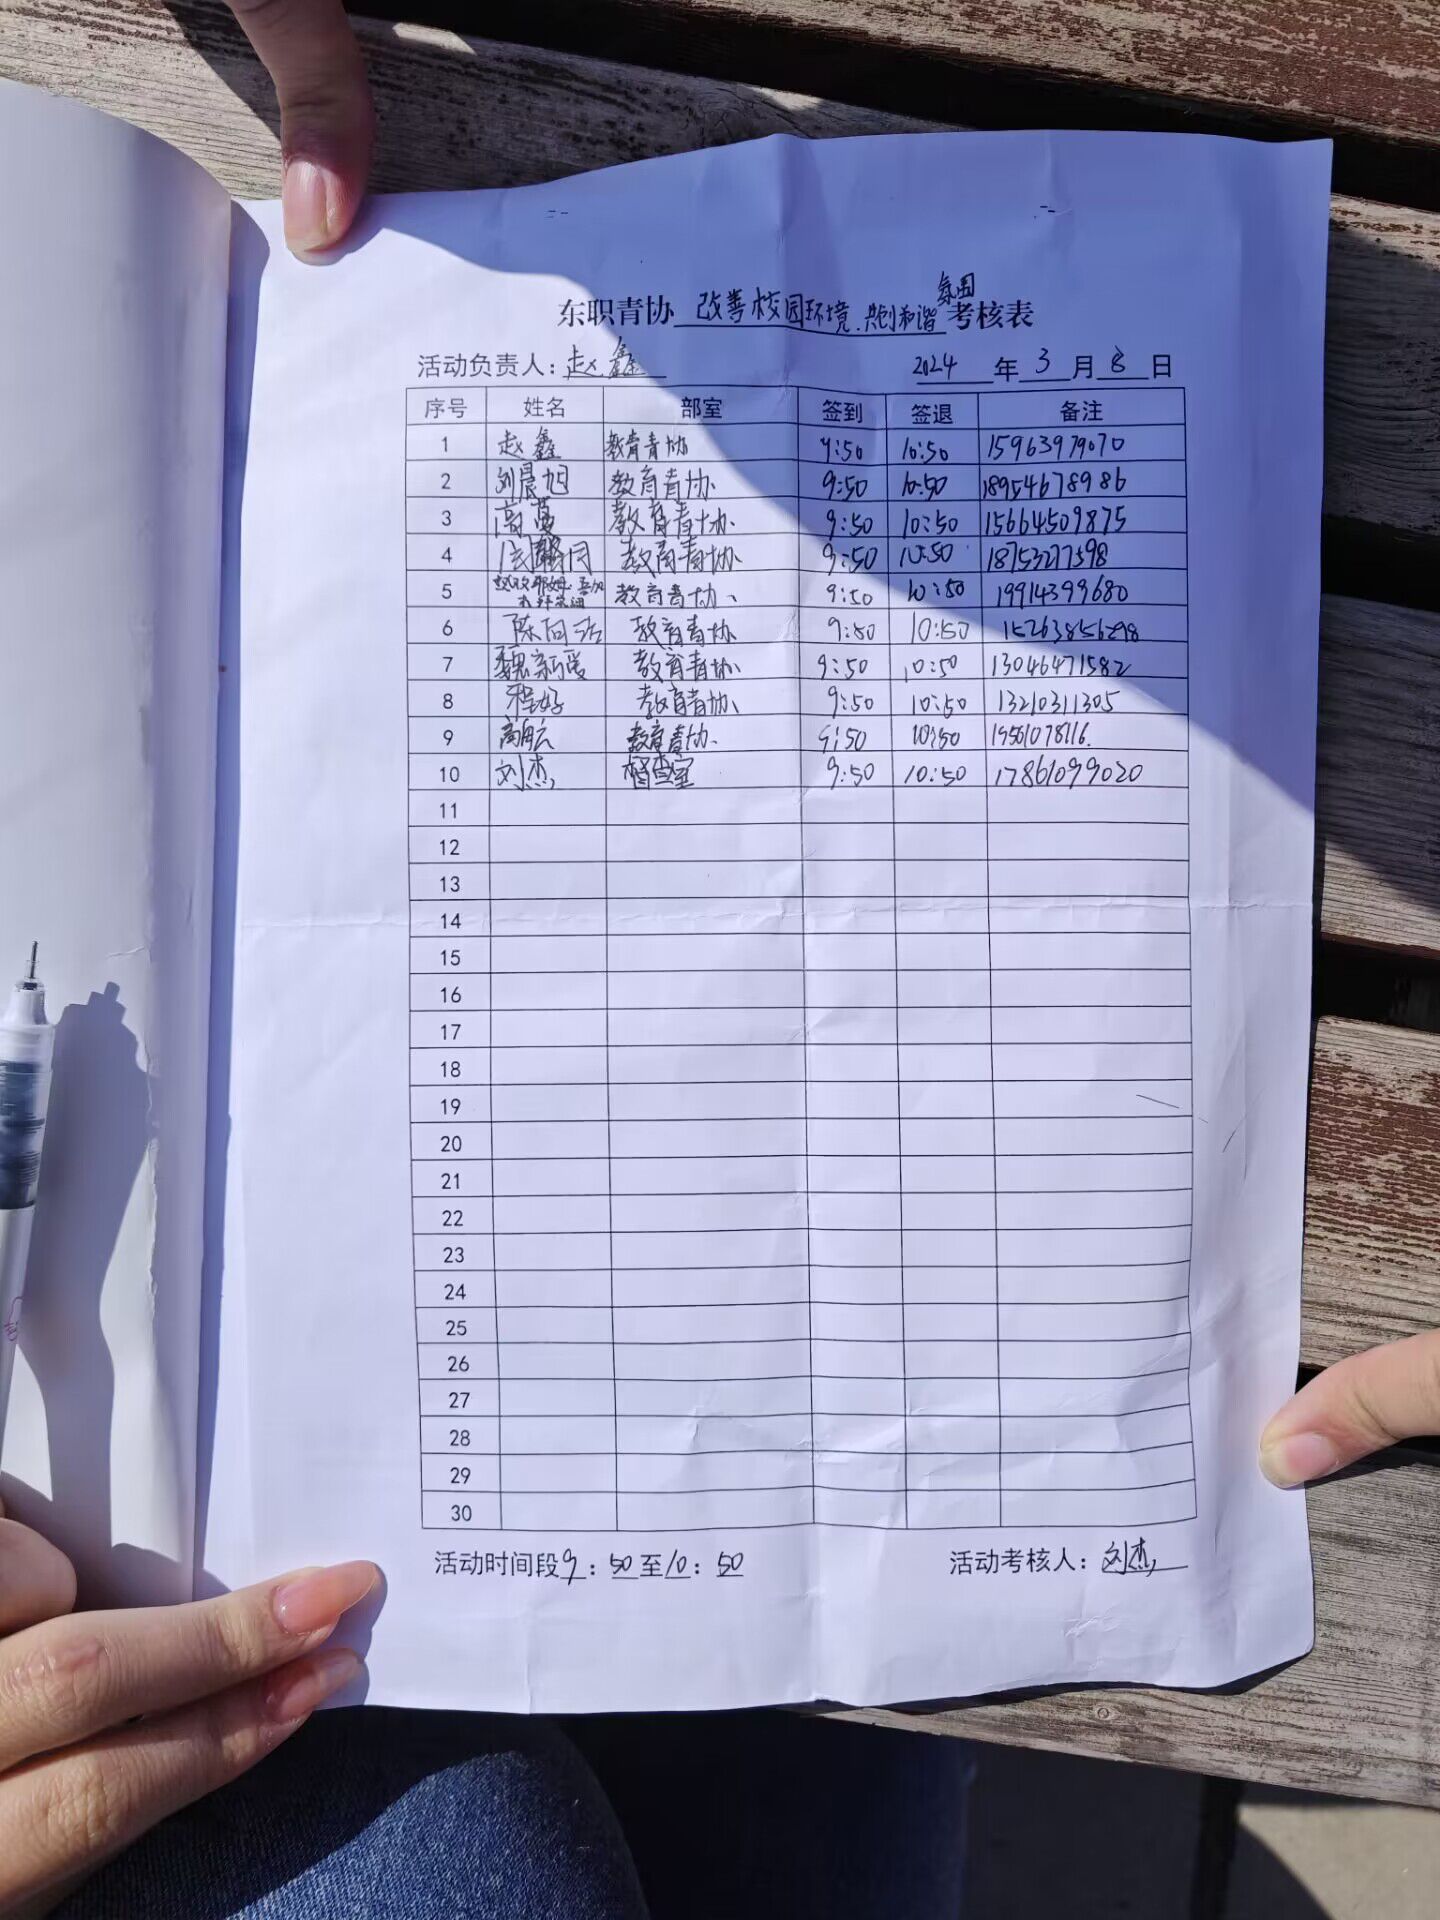 东职青协 改善校园环境.共创和谐氛围 考核表
活动负责人:赵鑫 2024年3月8日
序号 姓名 部室 签到 签退 备注
1 赵鑫 教育青协 9:50 10:50 15963979070
2 刘晨旭 教育青协 9:50 10:50 18954678986
3 高蔓 教育青协 9:50 10:50 15664509875
4 教育青协 9:50 10:50 18753277598
5 教育青协 9:50 10:50 19914399680
6 教育青协 9:50 10:50 15263856298
7 魏新爱 教育青协 9:50 10:50 13046471582
8 程好 教育青协 9:50 10:50 13210311305
9 高航 教育青协 9:50 10:50
10 刘杰 督查室 9:50 10:50 17861099020
11
12
13
14
15
16
17
18
19
20
21
22
23
24
25
26
27
28
29
30
活动时间段9:50至10:50 活动考核人:刘杰